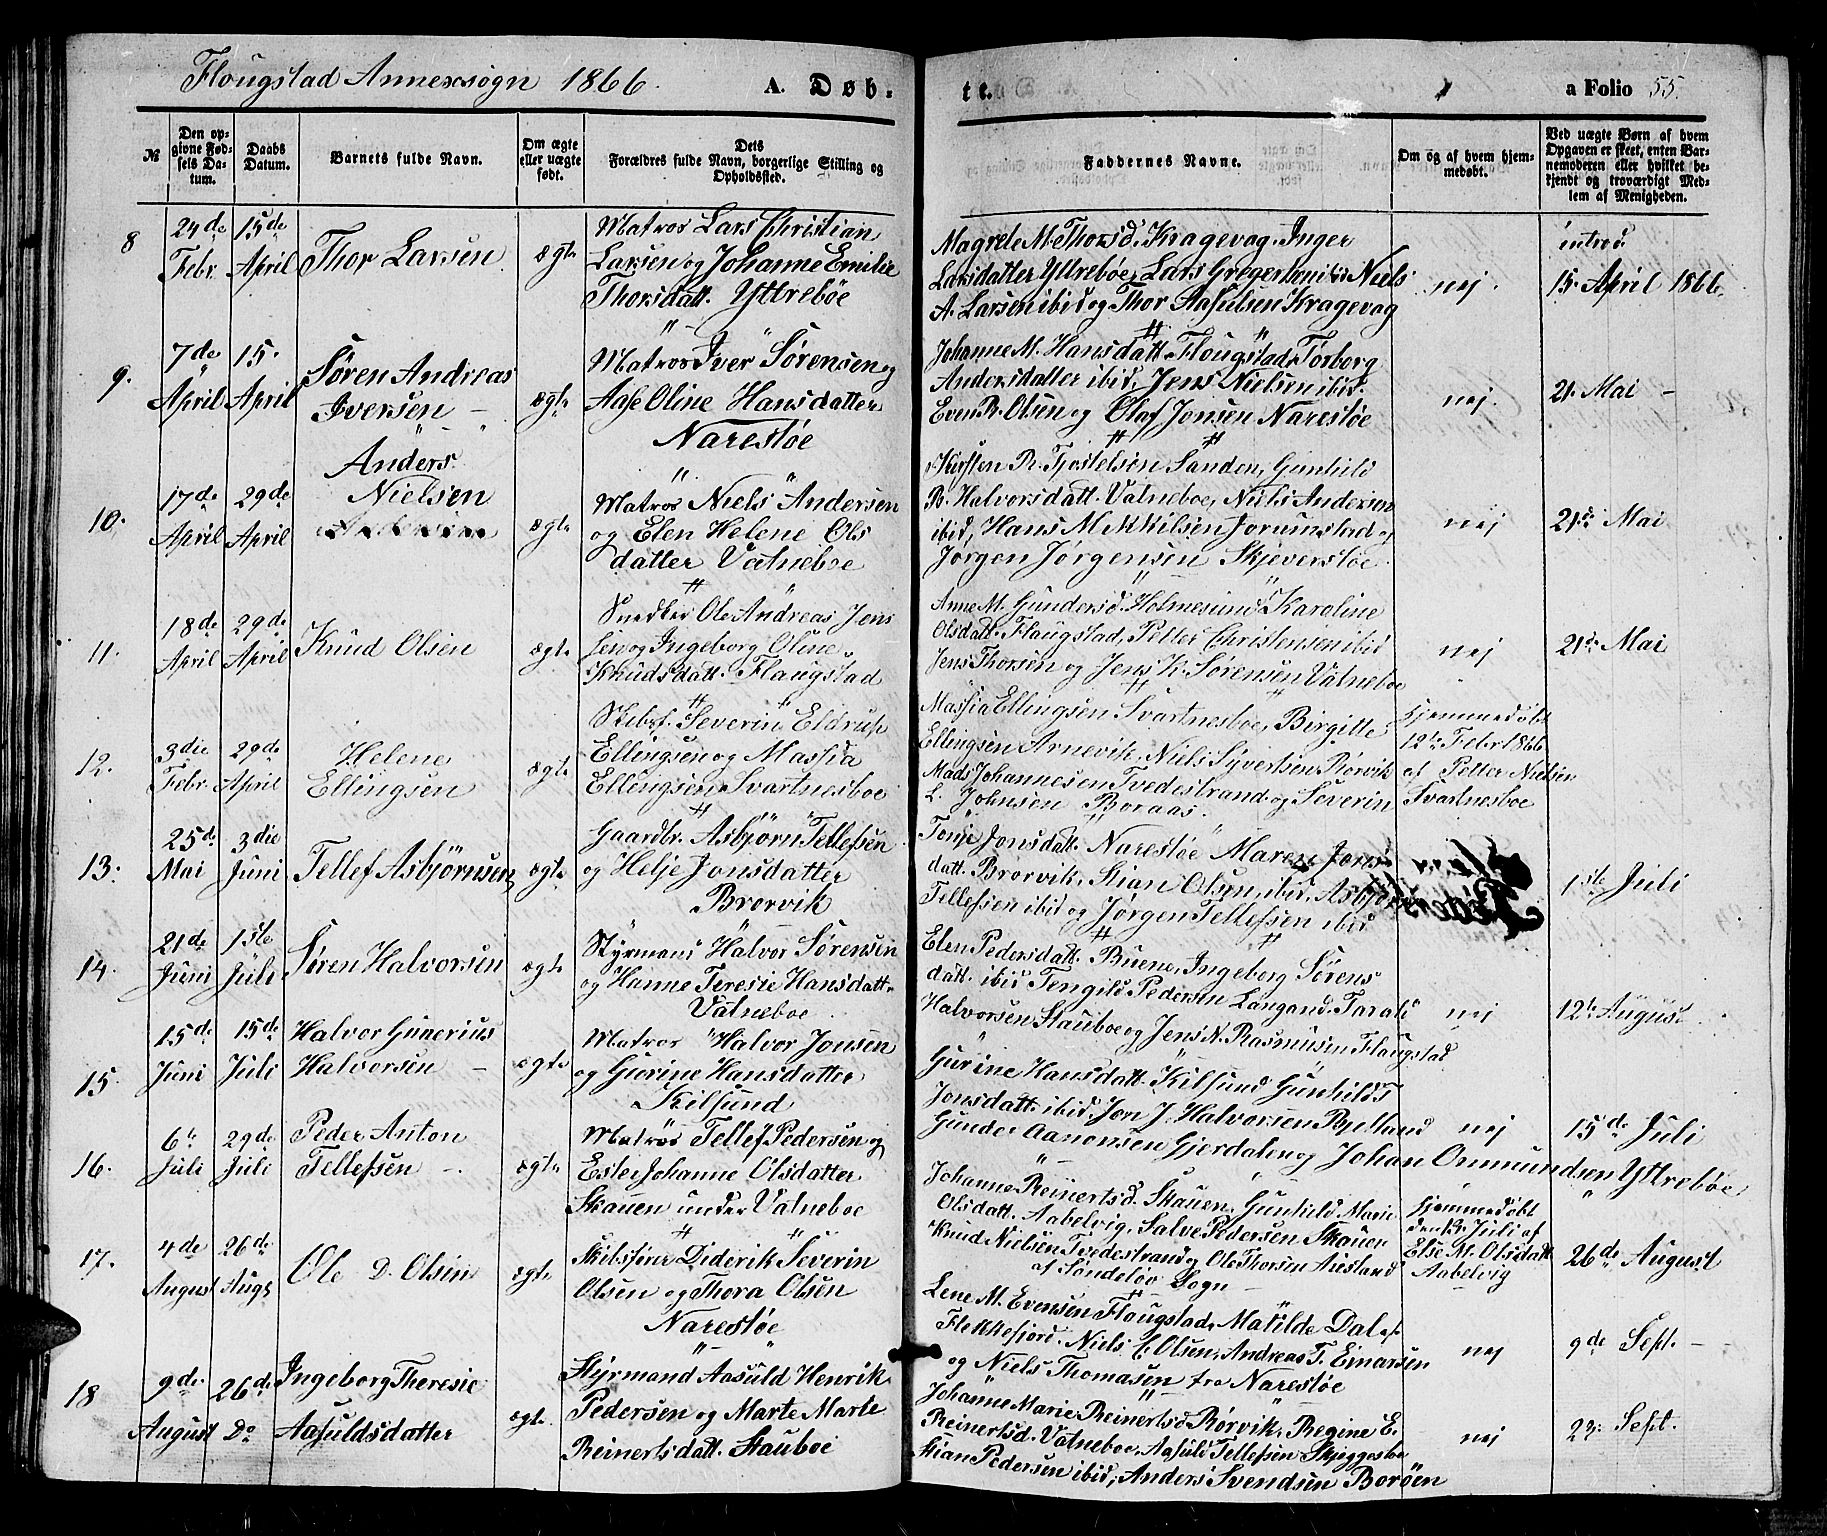 Flougstad Annexsogn 1866.
A. Døb-
te.
a Folio 55.
№
Den op-
givne Fød-
sels Da-
tum.
Daabs
Datum.
Barnets fulde Navn.
Om ægte
eller uægte
født.
Dets
Forældres fulde Navn, borgerlige Stilling og
Opholdssted.
Faddernes Navne.
Om og af hvem hjem-
medøbt.
Ved uægte Børn af hvem
Opgaven er skeet, enten Bar-
nemoderen eller hvilket be-
kjendt og troværdigt Med-
lem af Menigheden.
8
24de
Febr.
15de
April
Thor Larsen
ægte
Matros Lars Christian
Larsen og Johanne Emilie
Thorsdatt. Yttrebøe
Magrete M. Thorsd. Kragevag, Inger
Larsdatter Yttrebøe, Lars Gregersen ibid Niels
A. Larsen ibid og Thor Aasulsen Kragevag
nej.
introd.
15. April 1866.
9.
7de
April
15.
April
Søren Andreas
Iversen
ægte
Matros Iver Sørensen og
Aase Oline Hansdatter
Narestøe
Johanne M. Hansdatt. Flougstad, Torborg
Andersdatter ibid, Jens Nielsen ibid.
Even R. Olsen og Olaf Jonsen Narestøe
nej.
21. Mai
10.
17de
April
29de
April
Anders
Nielsen
ægte
Matros Niels Andersen
og Elen Helene Ols
datter Vatneboe
Kirsten R. Tjostelsen Sanden, Gunhild
B. Halvorsdatt. Vatneboe, Niels Andersen
ibid, Hans M. Mikilsen Jorumstad og
Jørgen Jørgensen Skjeverstøe
nej
21de Mai
11.
18de
April
29de
April
Knud Olsen
ægte
Snedker Ole Andreas Jens
sen og Ingeborg Oline
Knudsdatt. Flaugstad
Anne M. Gundersd. Holmesund Karoline
Olsdatt. Flaugstad, Petter Christensen ibid
Jens Thorsen og Jens K. Sørensen Vatneboe
nej
21de Mai
12.
3die
Febr.
29de
April
Helene
Ellingsen
ægte
Skibsf. Severin Eldrup
Ellingsen og Massia
Ellingsen Svartnesboe
Massia Ellingsen Svartnesboe, Birgitte
Ellingsen Arnevik, Niels Syvertsen Rørvik
Mads Johannesen Tvedestrand og Severin
L. Johnsen Boraas.
Hjemmedøbt
12te Febr 1866
af Petter Nielsen
Svartnesboe
13.
25de
Mai
3die
Juni
Tellef Asbjørnsen
ægte
Gaardbr. Asbjørn Tellefsen
og Helje Jonsdatter
Brorvik
Tonje Jonsdatt. Narestøe Maren Jons
datt. Brorvik, Stian Olsen ibid, Asbjør
Tellefsen ibid og Jørgen Tellefsen ibid
1ste Juli
14.
21de
Juni
1ste
Juli
Søren Halvorsen
ægte
Styrmand Halvor Sørensen
og Hanne Teresie Hansdatt.
Vatneboe
Elen Pedersdatt. Buene, Ingeborg Sørens
datt. ibid Tengild Pedersen Langand. Tarald
Halvorsen Stauboe og Jens N. Rasmusen Flaugstad
nej
12te August
15.
15de
Juni
15de
Juli
Halvor Gunerius
Halvorsen
ægte
Matros Halvor Jonsen
og Gurine Hansdatter
Kilsund
Gurine Hansdatt. Kilsund Gunhild T
Jonsdatt. ibid, Jon J. Halvorsen Bjelland
Gunder Aanonsen Gjerdalen og Johan Ommundsen Yttrebøe
nej
15de Juli
16.
6te
Juli
29de
Juli
Peder Anton
Tellefsen
ægte
Matros Tellef Pedersen og
Ester Johanne Olsdatter
Skauen under Vatneboe
Johanne Reinertsd. Skauen, Gunhild Marie
Olsdatt. Aabelvig, Salve Pedersen Skauen
Knud Nielsen Tvedestrand og Ole Thorsen Aiesland
af Søndeløv Sogn
Hjemmedøbt
den 13. Juli af
Else M. Olsdatt
Aabelvig
26de August
17.
4de
August
26de
Augs
Ole D. Olsen
ægte
Skibsfører Diderik Severin
Olsen og Thora Olsen
Narestøe
Lene M. Evensen Flougstad, Matilde Dal af
Flekkefjord. Niels C. Olsen, Andreas T. Einarsen
og Niels Thomasen fra Narestøe
nej
9de Sept.
18
9de
August
26de
Do
Ingeborg Theresie
Aasuldsdatter
ægte
Styrmand Aasuld Henrik
Pedersen og Marte Marte
Reinertsdatt. Stauboe
Johanne Marie Reinertsd Rørvik, Regine E.
Reinertsd. Vatneboe, Aasuld Tellefsen Skjeggestøe
Stian Pedersen ibid, Anders Svendsen Borøen
nej
23. Sept.